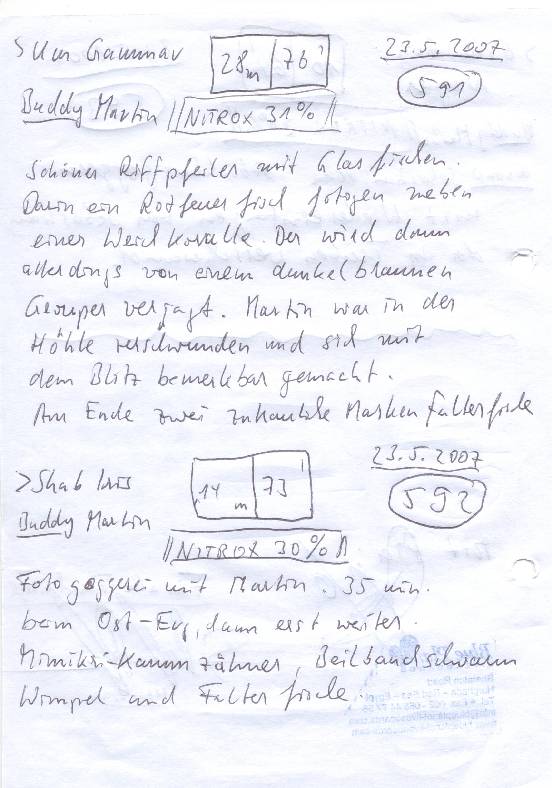 > Um Gammar 28m 76' 23.5.2007
591
Buddy Martin NITROX 31%
Schöner Riffpfeiler mit Glasfischen.
Darin ein Rotfeuerfisch fotogen neben
einer Weichkoralle. Der wird dann
allerdings von einem dunkelbraunen
Grouper verjagt. Martin war in der
Höhle verschwunden und sich mit
dem Blitz bemerkbar gemacht.
Am Ende zwei zutrauliche Masken Falterfische
23.5.2007
> Shab Iris 14 m 73' 592
Buddy Martin
NITROX 30%
Foto mit Martin. 35 min.
beim Ost-Erg, dann erst weiter.
Mimikri-Kammzähner, Beilbauchschwarm
Wimpel und Falterfische.